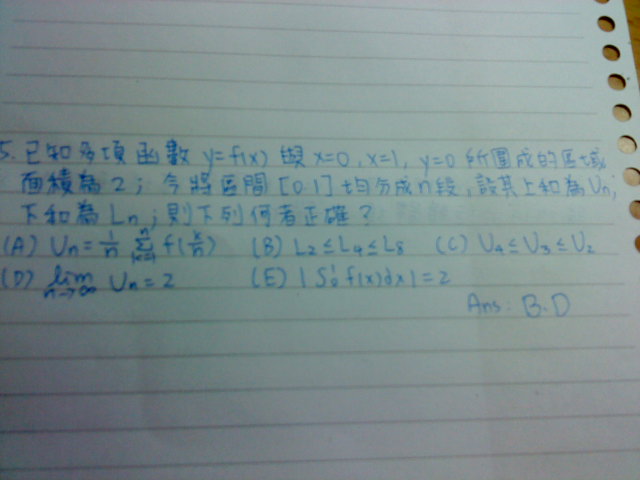 5. 已知多項函數 y=f(x) 與 x=0, x=1, y=0 所圍成的區域
面積為 2；今將區間 [0.1] 均分成 n 段，設其上和為 Un,
下和為 Ln；則下列何者正確？
(A) Un = 1/n Σ_{k=1}^{n} f(k/n) (B) L2 ≤ L4 ≤ L8 (C) U4 ≤ U3 ≤ U2
(D) lim_{n→∞} Un = 2 (E) |∫_0^1 f(x)dx| = 2
Ans: B.D